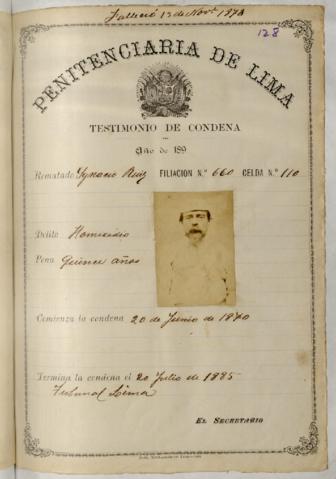 Falleció 13 de Nov. 1878
128
PENITENCIARIA DE LIMA
TESTIMONIO DE CONDENA
Año de 189
Rematado Ygnacio Ruiz FILIACION N.° 660 CELDA N.° 110
Delito Homicidio
Pena quince años
Comienza la condena 20 de Junio de 1870
Termina la condena el 20 Julio de 1885
Tribunal Lima
EL SECRETARIO